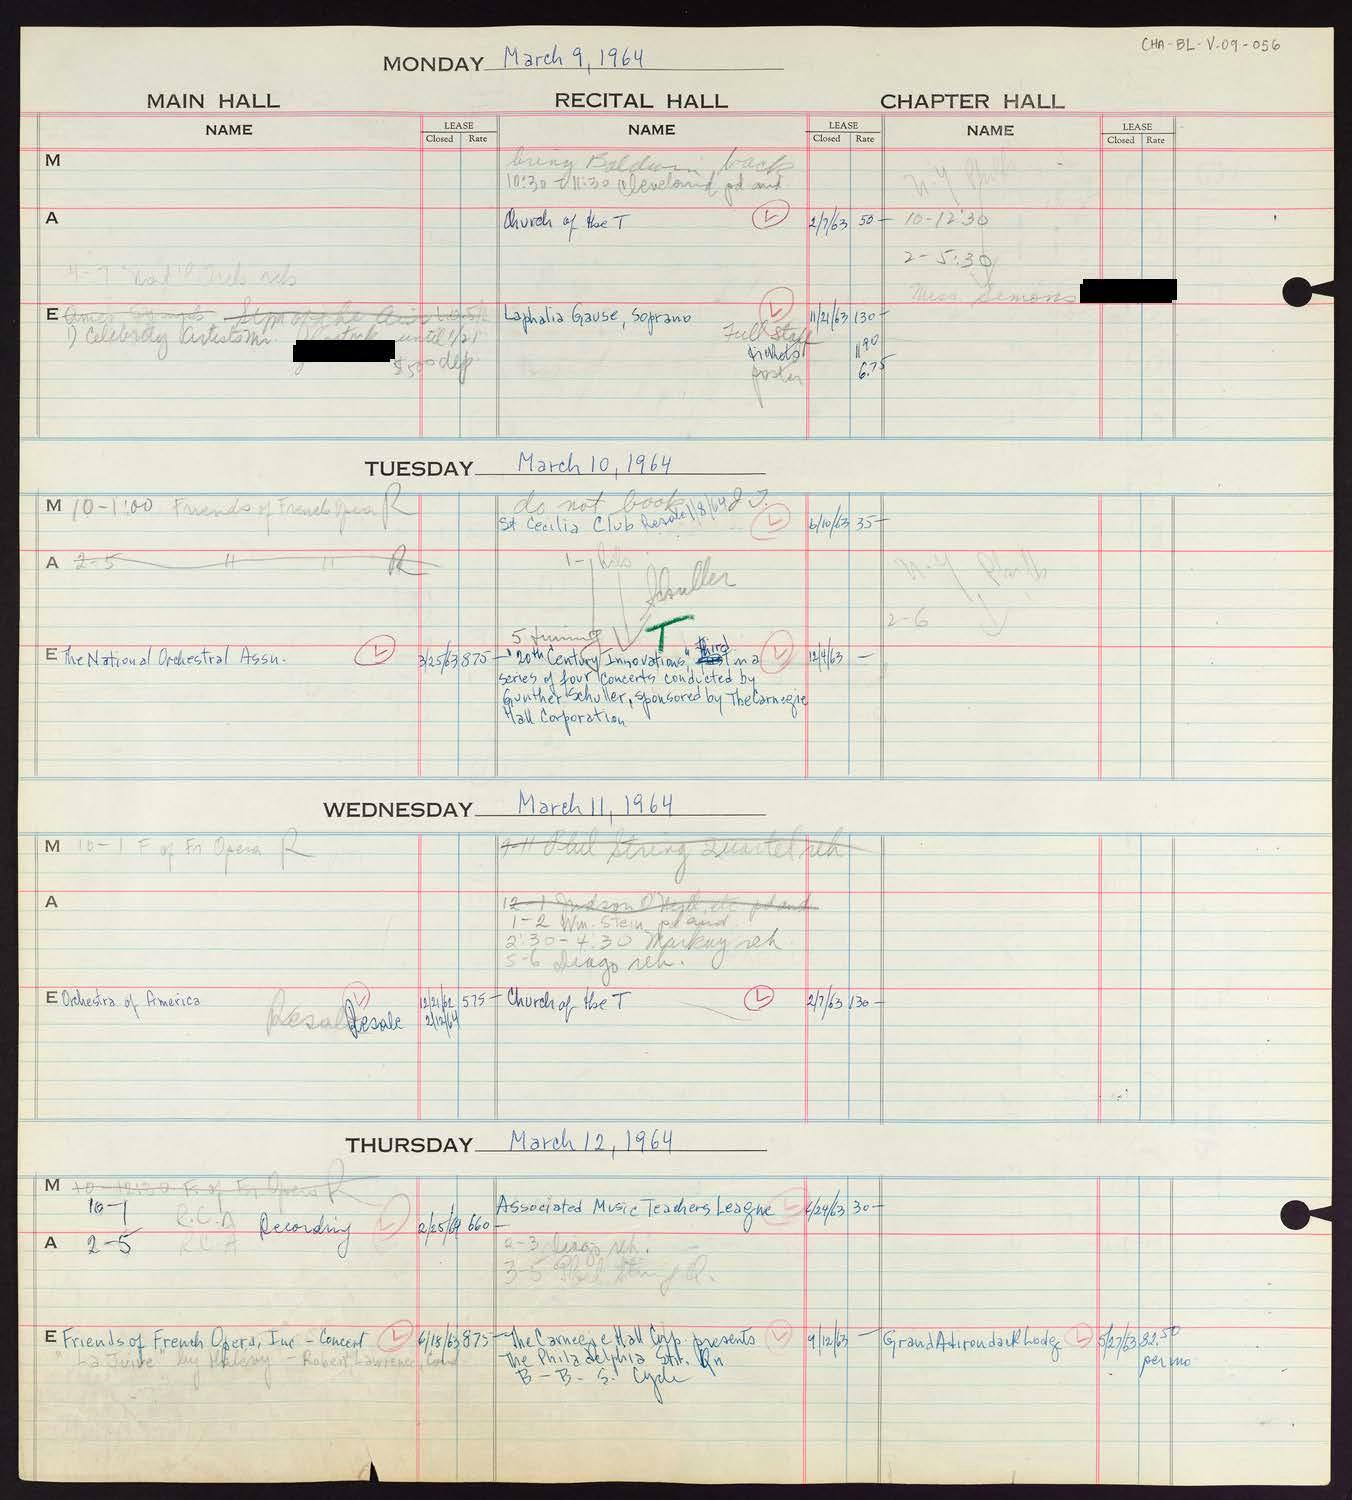 CHA-BL-V-09-056
MONDAY March 9, 1964
MAIN HALL RECITAL HALL CHAPTER HALL
NAME LEASE Closed Rate NAME LEASE Closed Rate NAME LEASE Closed Rate
M
bring Baldwin back
10:30 - 11:30 Cleveland pd and
A
Church of the T 2/7/63 50-
10-12:30
2-5:30
4-7
Miss Simons
E
Laphalia Gause, Soprano 11/21/63 130-
1) Celebrity Artists Mr. until 1/21
$500 dep.
Full Staff
tickets 11.90
poster 6.75
TUESDAY March 10, 1964
M 10-1:00 Friends of French Opera R
do not book
St Cecilia Club Resale 1/8/64 6/10/63 35-
A 2-5 " " R
1- Schuller
N.Y.
2-6
5
T
E The National Orchestral Assn. 3/25/63 875-
"20th Century Innovations," third in a 12/4/63 -
series of four concerts conducted by
Gunther Schuller, sponsored by The Carnegie
Hall Corporation
WEDNESDAY March 11, 1964
M 10-1 F of Fr Opera R
9-11 Phil String Quartet reh
A
12-1 Judson pd and
1-2 Wm. Stein pd and
2:30-4:30 reh
5-6 reh.
E Orchestra of America 12/21/62 575-
Resale Resale 2/12/64
Church of the T 2/7/63 130-
THURSDAY March 12, 1964
M 10-12:30 F. of Fr Opera R
10-1 R.C.A Recording 2/25/64 660-
Associated Music Teachers League 6/24/63 30-
A 2-5 R.C.A
2-3 reh.
3-5 Phil String Q.
E Friends of French Opera, Inc - Concert 6/18/63 875-
"La Juive" by Halevy - Robert Lawrence, Cond.
The Carnegie Hall Corp. presents 9/12/63 -
The Philadelphia Str. Qn
B-B-S. Cycle
Grand Adirondack Lodge 5/27/63 82.50
per mo